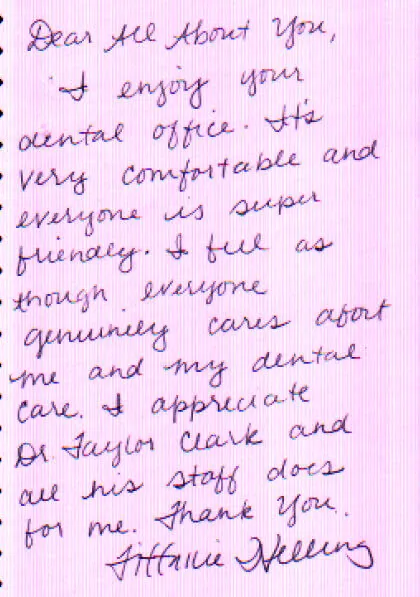 Dear All About You,
I enjoy your
dental office. It's
very comfortable and
everyone is super
friendly. I feel as
though everyone
genuinely cares about
me and my dental
care. I appreciate
Dr Taylor Clark and
all his staff does
for me. Thank You.